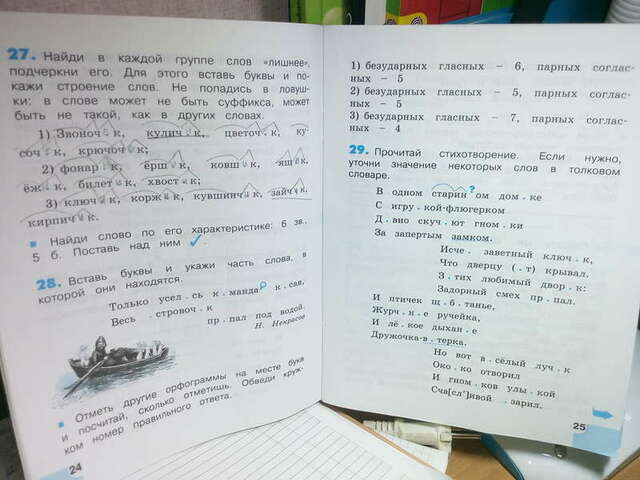 27. Найди в каждой группе слов «лишнее»,
подчеркни его. Для этого вставь буквы и по-
кажи строение слов. Не попадись в ловуш-
ки: в слове может не быть суффикса, может
быть не такой, как в других словах.
1) Звоноч . к, кулич . к, цветоч . к, ку-
соч . к, крючоч . к;
2) фонар . к, ёрш . к, ковш . к, ящ . к,
ёж . к, билет . к, хвост . к;
3) ключ . к, корж . к, кувшинч . к, зайч . к,
кирпич . к.
Найди слово по его характеристике: 6 зв.,
5 б. Поставь над ним ✓.
28. Вставь буквы и укажи часть слова, в
которой они находятся.
Только усел . сь к . манда к . сая,
Весь . стровоч . к
пр . пал под водой.
Н. Некрасов
Отметь другие орфограммы на месте букв
и посчитай, сколько отметишь. Обведи круж-
ком номер правильного ответа.
24
1) безударных гласных – 6, парных соглас-
ных – 5
2) безударных гласных – 5, парных соглас-
ных – 5
3) безударных гласных – 7, парных соглас-
ных – 4
29. Прочитай стихотворение. Если нужно,
уточни значение некоторых слов в толковом
словаре.
В одном старин ? ом дом . ке
С игру . кой-флюгерком
Д . вно скуч . ют гном . ки
За запертым замком.
Исче . заветный ключ . к,
Что дверцу (. т) крывал.
З . тих любимый двор . к:
Задорный смех пр . пал.
И птичек щ . б . танье,
Журч . н . е ручейка,
И лё . кое дыхан . е
Дружочка-в . терка.
Но вот в . сёлый луч . к
Око . ко отворил
И гном . ков улы . кой
Сча[сл']ивой . зарил.
25